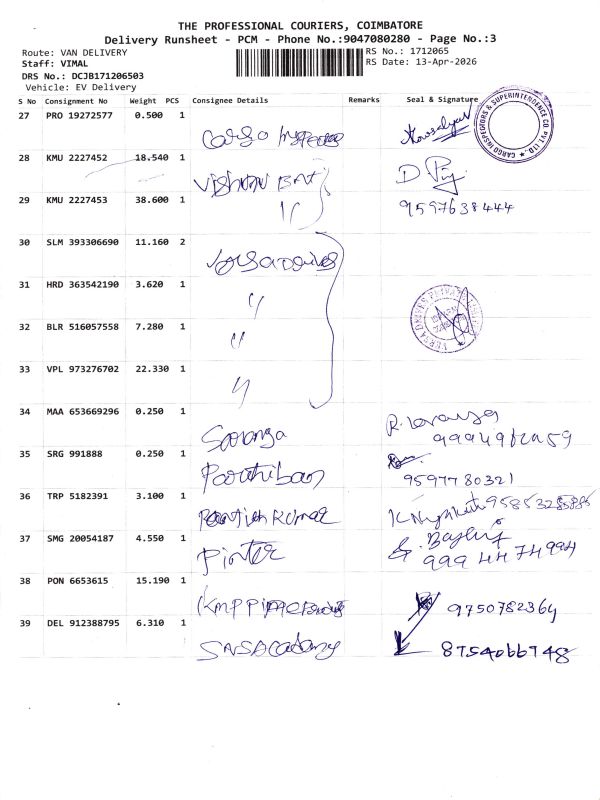 THE PROFESSIONAL COURIERS, COIMBATORE
Delivery Runsheet - PCM - Phone No.:9047080280 - Page No.:3
Route: VAN DELIVERY RS No.: 1712065
Staff: VIMAL RS Date: 13-Apr-2026
DRS No.: DCJB171206503
Vehicle: EV Delivery
S No Consignment No Weight PCS Consignee Details Remarks Seal & Signature
27 PRO 19272577 0.500 1 Cargo
CARGO INSPECTORS & SUPERINTENDENCE CO. PVT. LTD.
28 KMU 2227452 18.540 1
29 KMU 2227453 38.600 1 " 9597638444
30 SLM 393306690 11.160 2
31 HRD 363542190 3.620 1 "
32 BLR 516057558 7.280 1 "
33 VPL 973276702 22.330 1 "
34 MAA 653669296 0.250 1 Saranga
35 SRG 991888 0.250 1 Parthiban 9597780321
36 TRP 5182391 3.100 1 Kumar
37 SMG 20054187 4.550 1 999 44 74 994
38 PON 6653615 15.190 1 KMP 9750782364
39 DEL 912388795 6.310 1 SNS Academy 8754066748